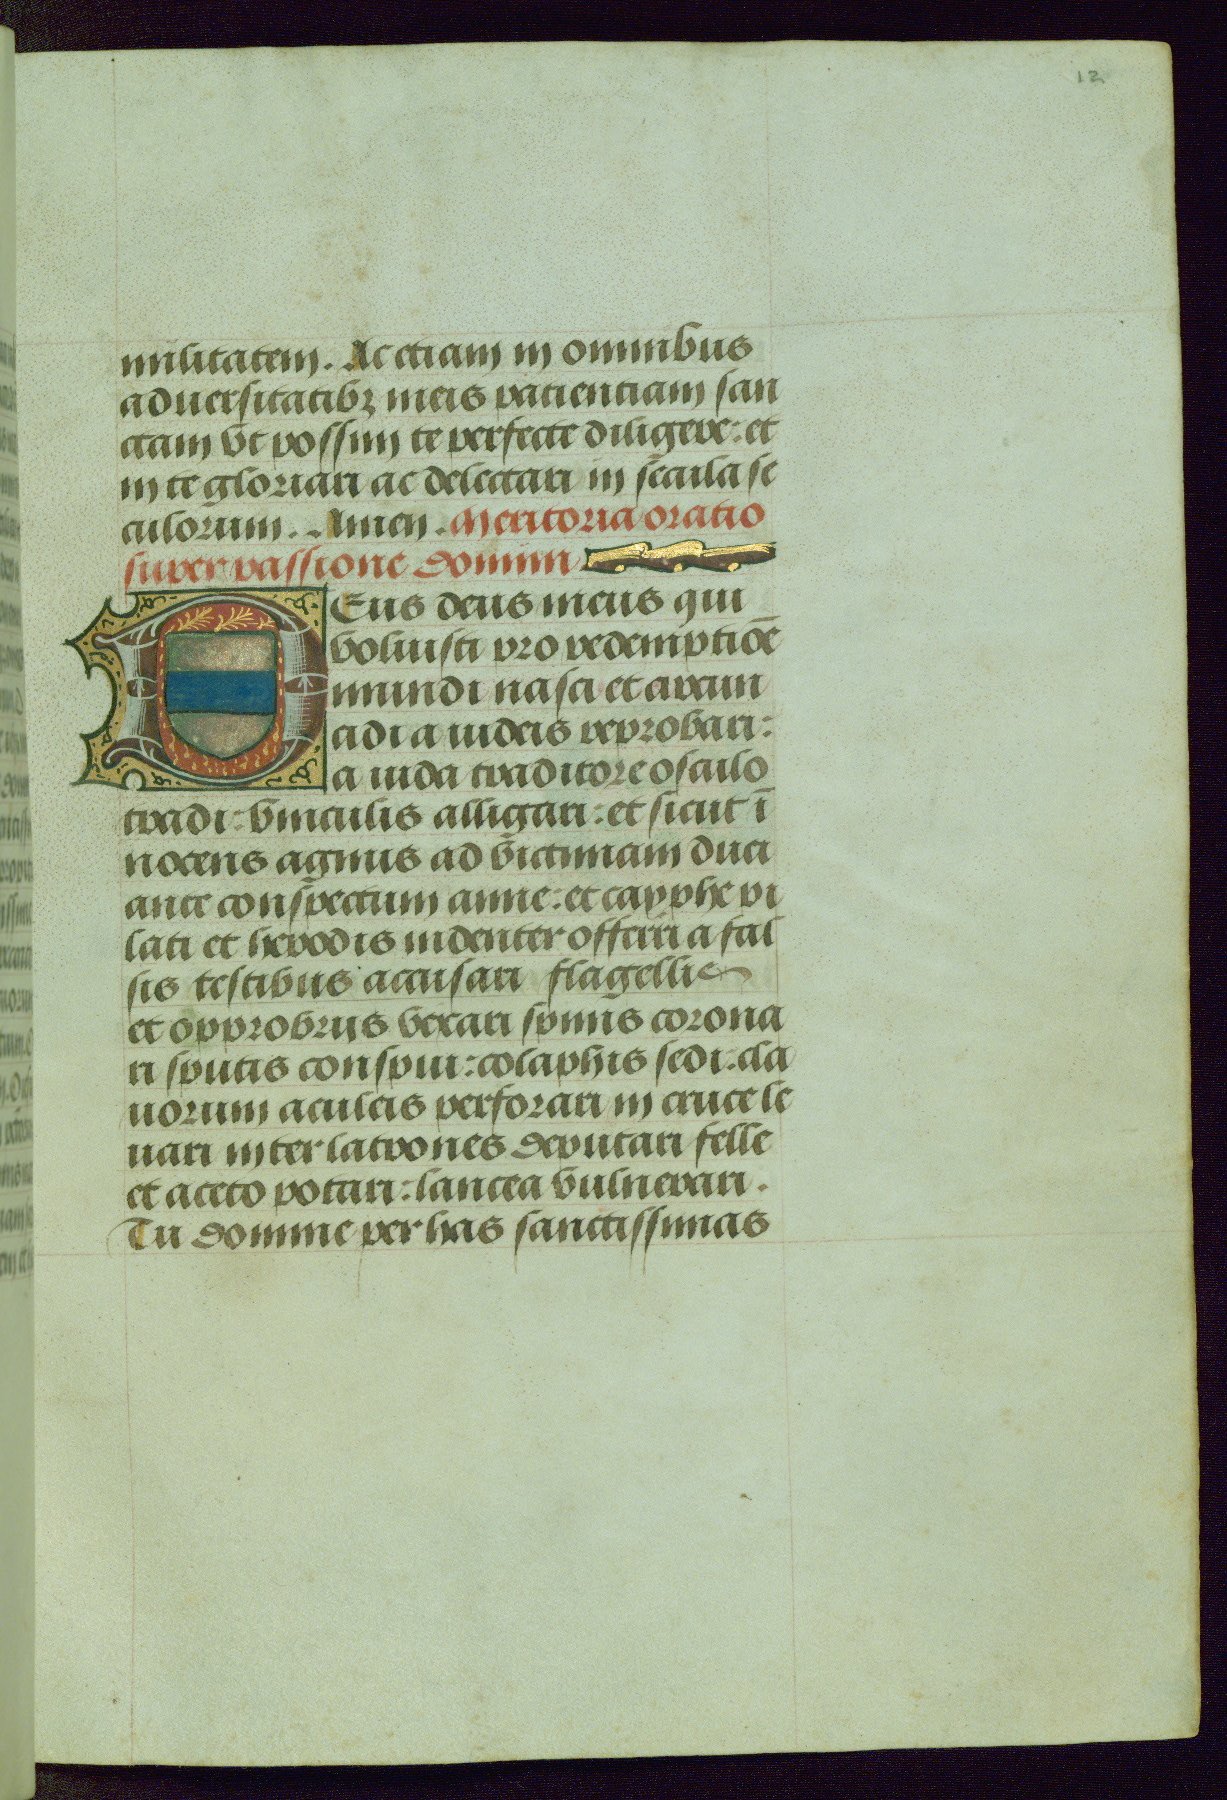 12
militatem. Ac etiam in omnibus
aduersitatibꝫ meis patientiam san
ctam vt possim te perfecte diligere: et
in te gloriari ac delectari in secula se
culorum. Amen. Meritoria oratio
super passione domini
Deus deus meus qui
voluisti pro redemptiōe
mundi nasci et circun
cidi a iudeis reprobari:
a iuda traditore osculo
tradi: vinculis alligari: et sicut ī
nocens agnus ad victimam duci
ante conspectum anne: et cayphe pi
lati et herodis indenter offerri a fal
sis testibus accusari flagellis
et opprobriis vexari spinis corona
ri sputis conspui: colaphis sedi: cla
uorum aculeis perforari in cruce le
uari inter latrones deputari felle
et aceto potari: lancea vulnerari.
Tu domine per has sanctissimas